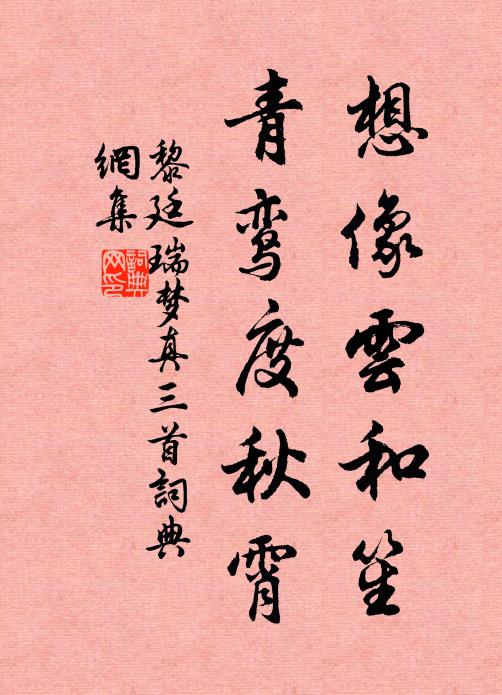 想像雲和笙
青鸾度秋霄
黎廷瑞梦真三首詞典
網集
詞典
网印